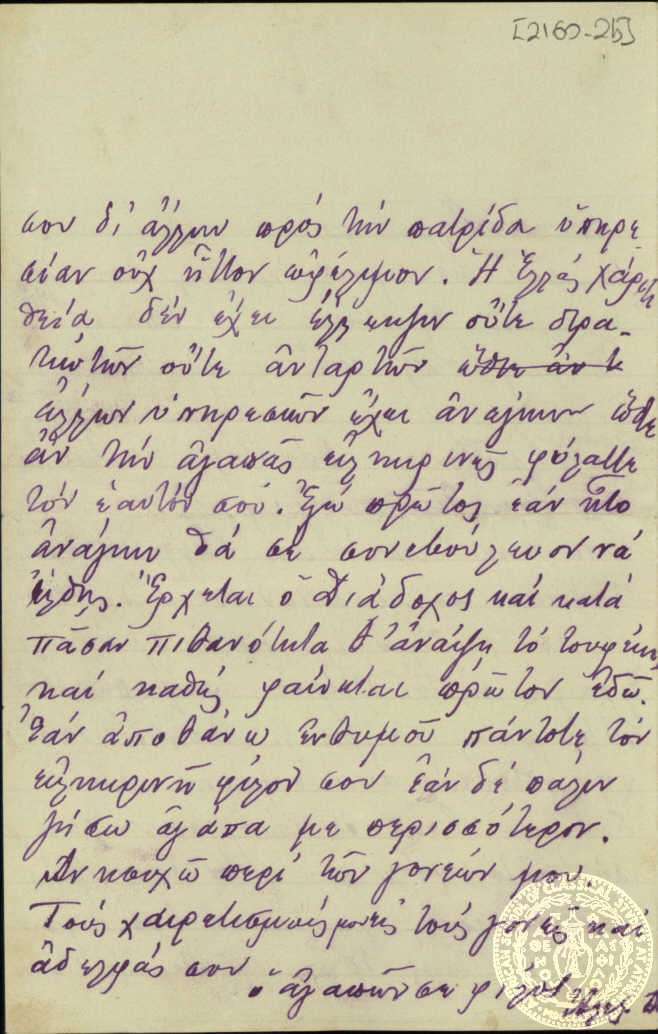 [2160-25]
σου δι' άλλην πρός τήν πατρίδα ὑπηρε
σίαν οὐχ ἧττον ὠφέλιμον. Ἡ Ἑλλάς χάριτι
θεία δέν ἔχει ἔλλειψιν οὔτε στρα-
τιωτῶν οὔτε ἀνταρτῶν ὥστε ἄν
ἄλλων ὑπηρεσιῶν ἔχει ἀνάγκην ὥστε
ἄν τήν ἀγαπᾶς εἰλικρινῶς φύλαττε
τόν ἑαυτόν σου. Ἐγώ πρῶτος ἐάν ἦτο
ἀνάγκη θά σε συνεβούλευον νά
ἔλθῃς. Ἔρχεται ὁ Διάδοχος καί κατά
πᾶσαν πιθανότητα θ' ἀνάψῃ τό τουφέκι
καί καθώς φαίνεται πρῶτον ἐδῶ.
Ἐάν ἀποθάνω ἐνθυμοῦ πάντοτε τόν
εἰλικρινῆ φίλον σου ἐάν δέ πάλιν
ζήσω ἀγάπα με περισσότερον.
Ἀνησυχῶ περί τῶν γονέων μου.
Τούς χαιρετισμούς μου εἰς τούς γονεῖς καί
ἀδελφάς σου
ὁ ἀγαπῶν σε φίλος